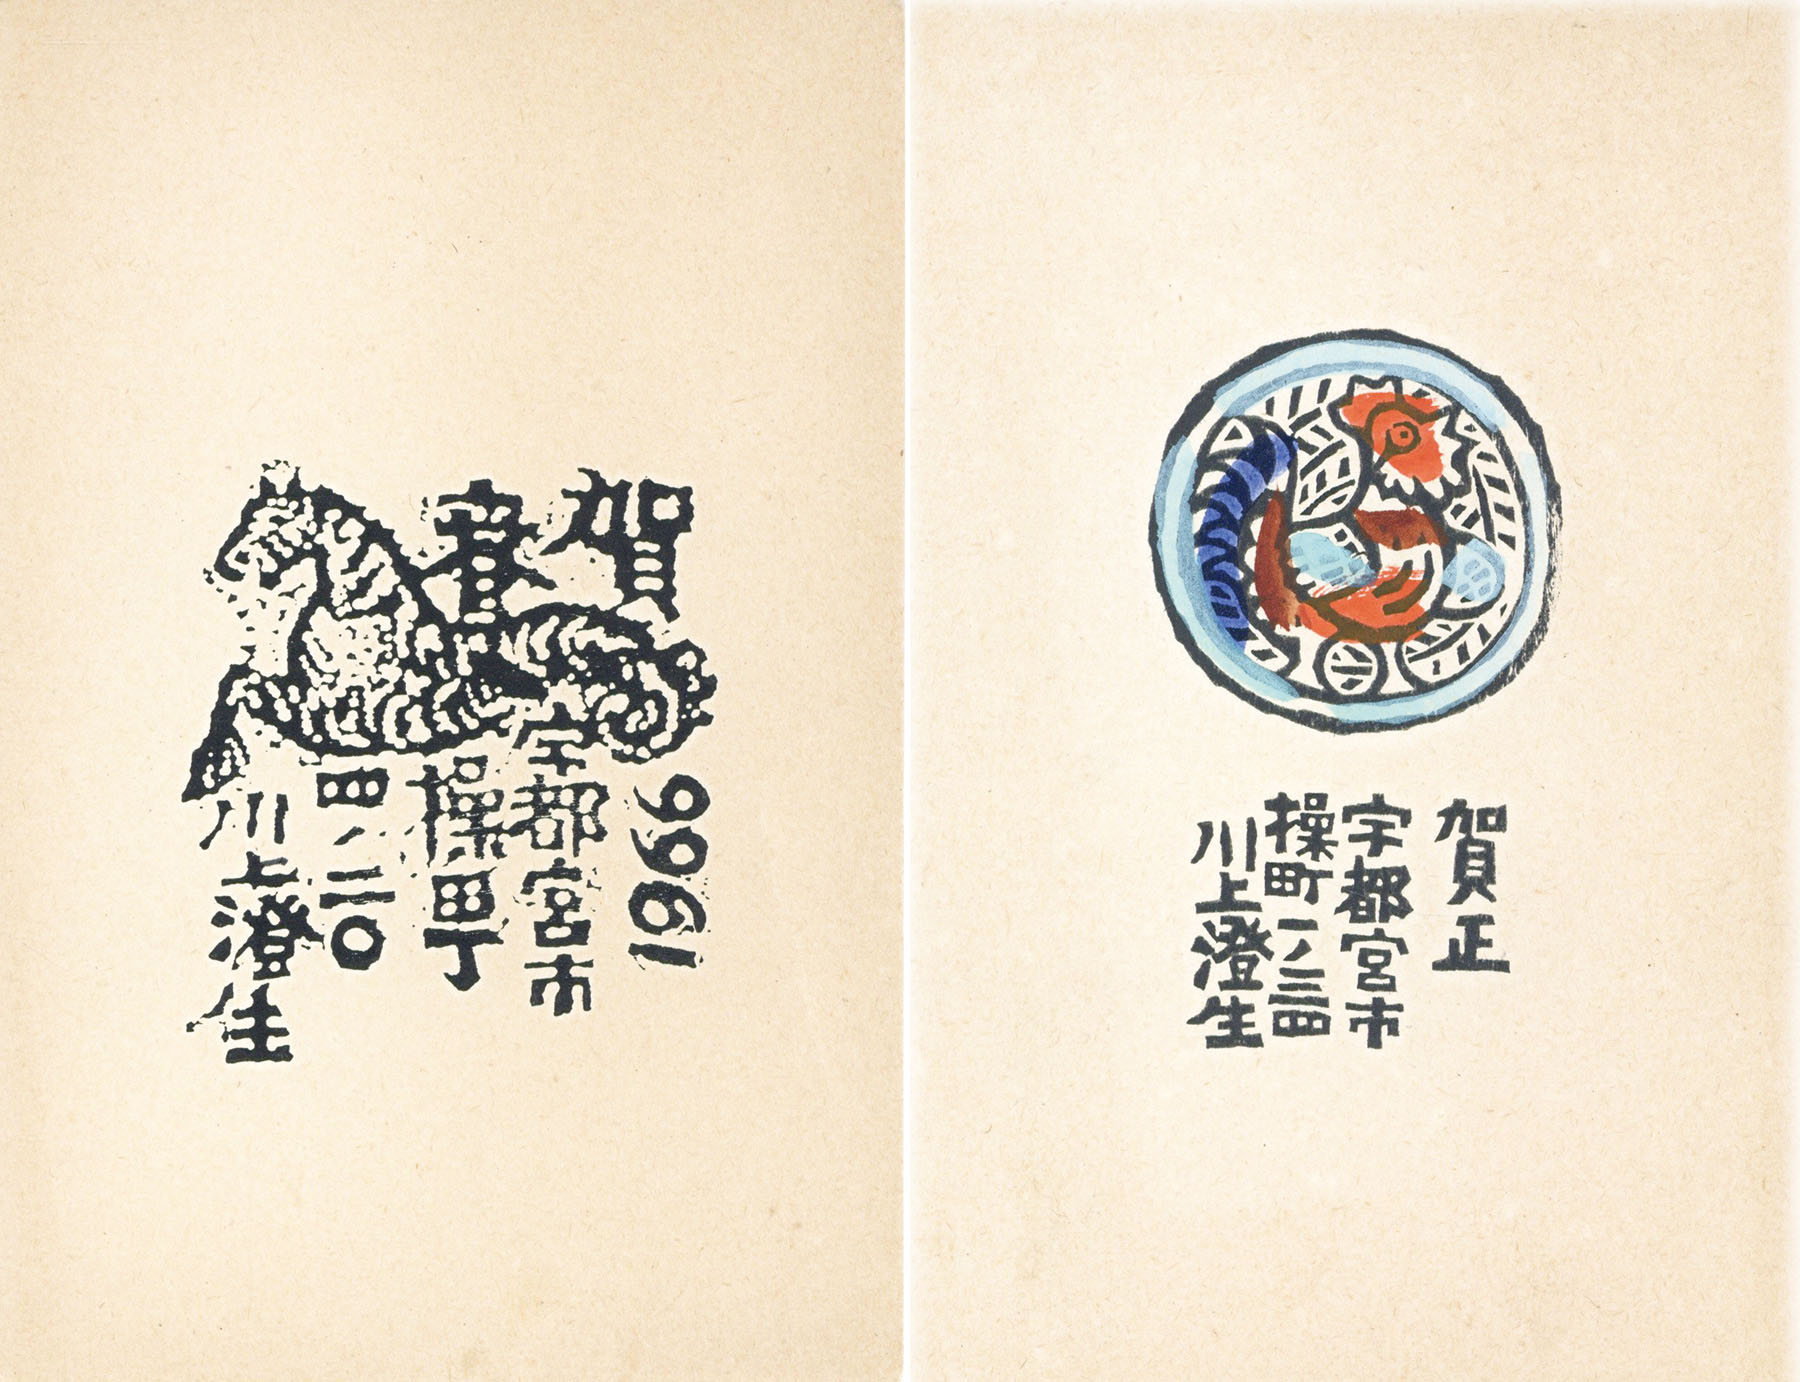 賀春
1966
宇都宮市
操町
四ノ二〇
川上澄生
賀正
宇都宮市
操町一ノ三四
川上澄生